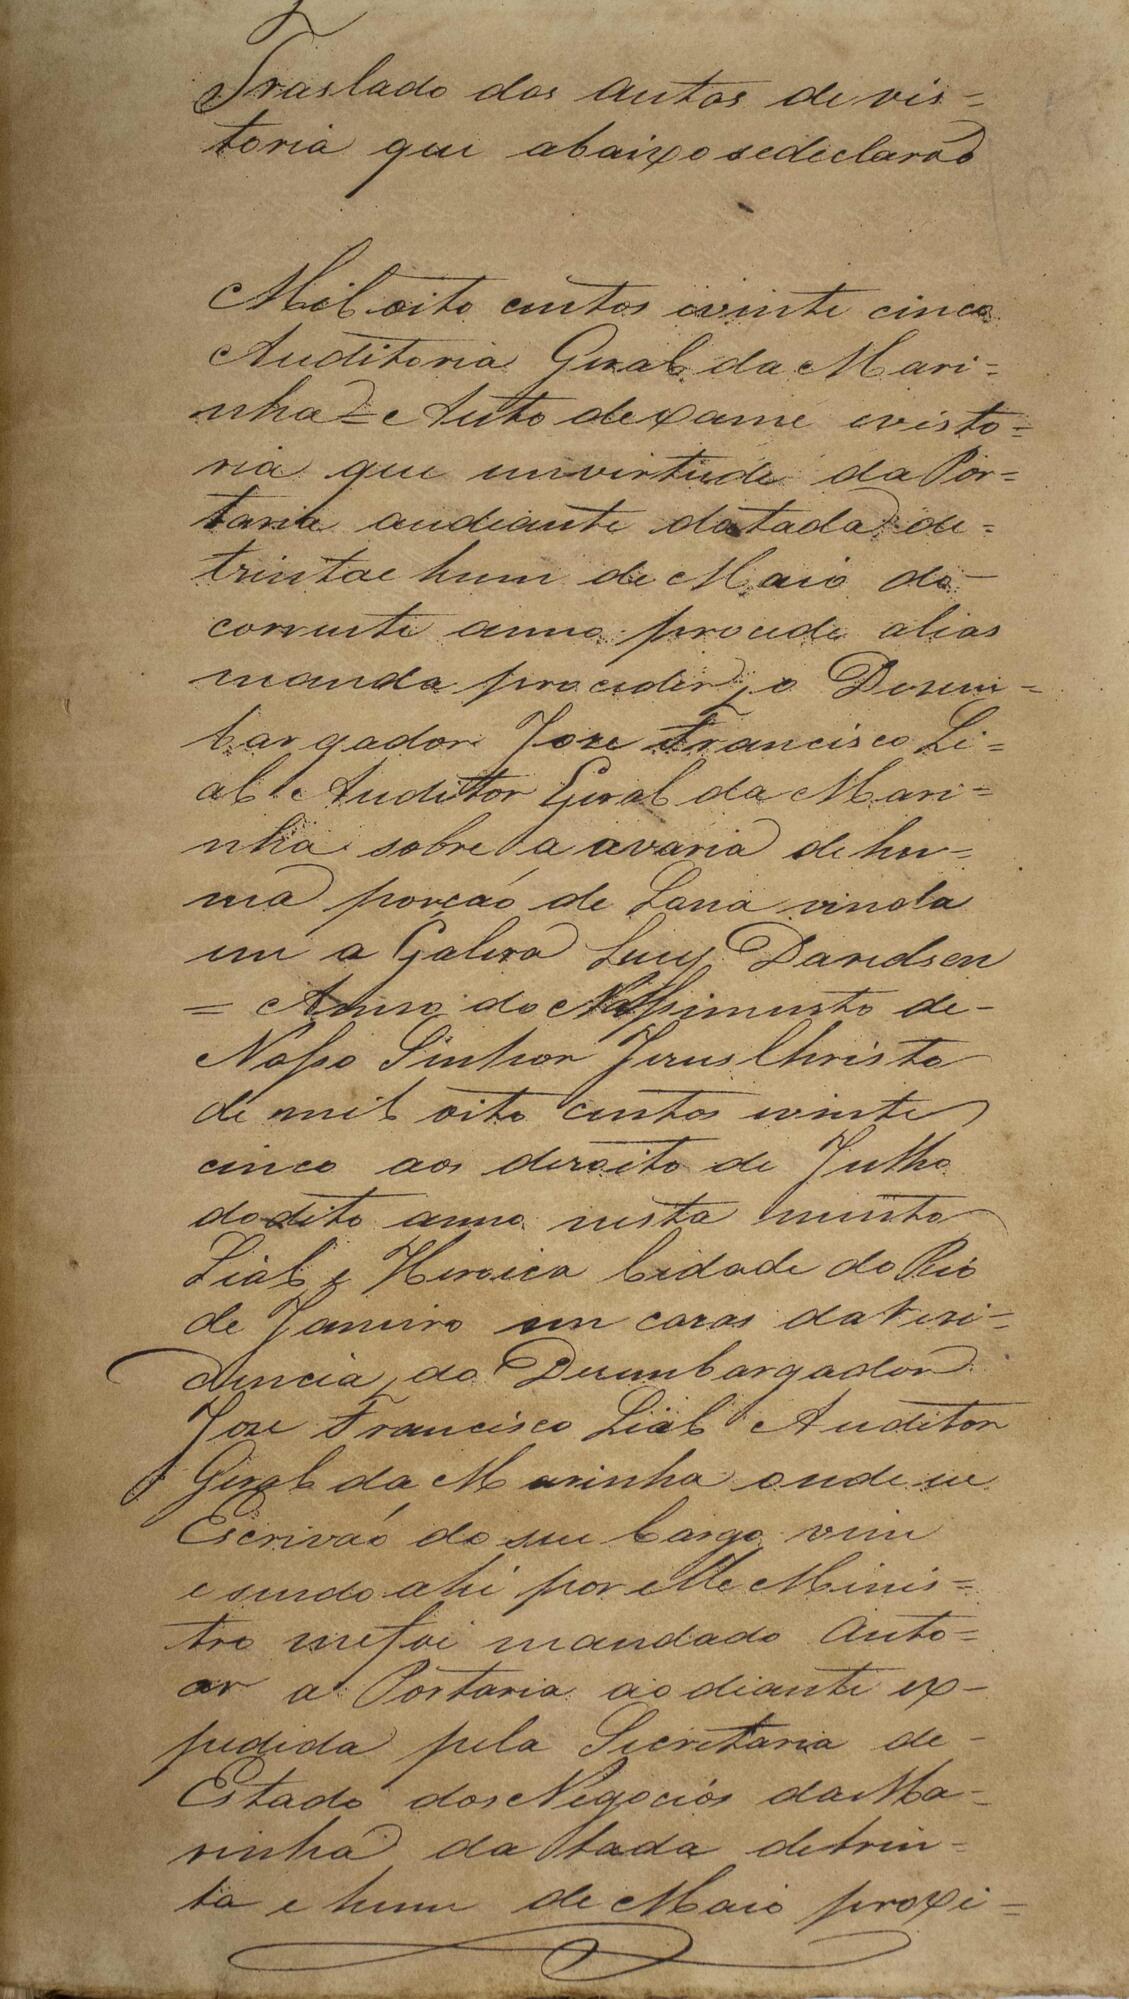 Traslado dos autos de vis=
toria que abaixo sedeclarão
Mil oito centos evinte cinco
Auditoria Geral da Mari=
nha = Auto dexame evisto=
ria que emvirtude da Por=
taria audiante datada de=
trinta e hum de Maio do
corrente anno procede alias
manda proceder, o Dezem=
bargador Joze Francisco Le=
al Auditor Geral da Mari=
nha sobre a avaria de hu=
ma porção de Lana vinda
em a Galera Lucy Davidsen
= Anno do Nassimento de=
Nosso Senhor Jezus Christo
de mil oito centos evinte
cinco aos dezoito de Julho
dodito anno nesta muito
Leal e Heroica Cidade do Rio
de Janeiro em cazas da rezi=
dencia do Dezembargador
Joze Francisco Leal Auditor
Geral da Marinha onde eu
Escrivão do seu Cargo vim
e sendo ahi por elle Minis=
tro mefoi mandado Auto=
ar a Portaria ao diante ex=
pedida pela Secretaria de=
Estado dos Negocios da Ma=
rinha da tada detrin=
ta e hum de Maio proxi=